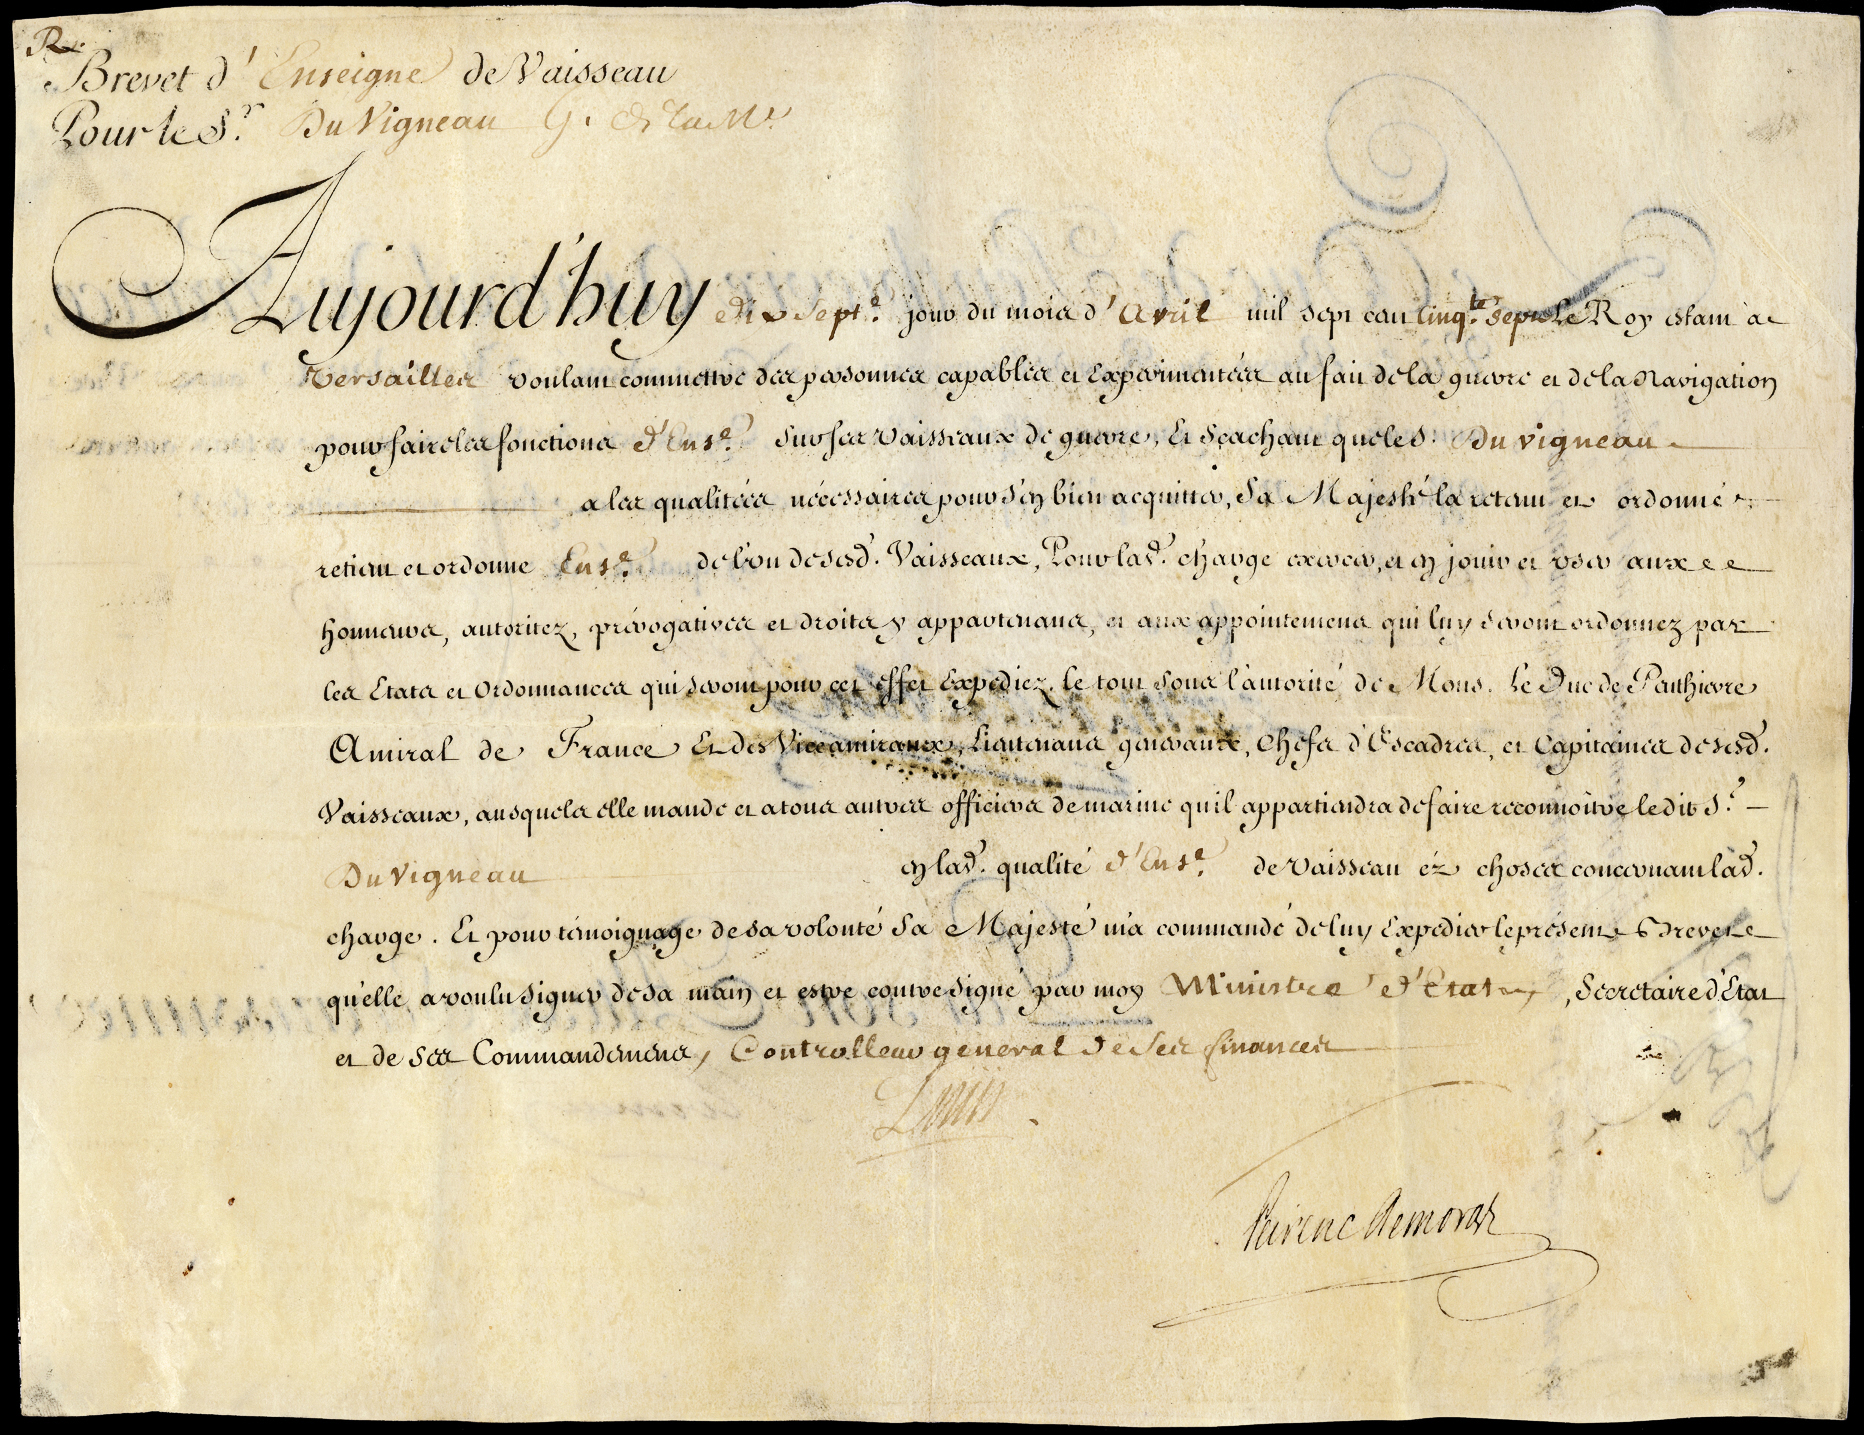 R.
Brevet d'Enseigne de Vaisseau
Pour le S.r Du Vigneau G. de la M.e
Aujourd'huy dix Sept.e jour du mois d'Avril mil sept cent cinq.te Sept Le Roy estant à
Versailles voulant commettre des personnes capables et Expérimentées au fait de la guerre et de la Navigation
pour faire les fonctions d'Ens.e Sur ses vaisseaux de guerre, Et Sçachant que le S. Du vigneau
a les qualitées nécessaires pour s'en bien acquitter, Sa Majesté la retenu et ordonné
retient et ordonne Ens.e de l'un de sesd. Vaisseaux, Pour lad. charge exercer, et en jouir et user aux
honneurs, autoritez, prérogatives et droits y appartenans, et aux appointemens qui luy seront ordonnez par
les Etats et Ordonnances qui seront pour cet effet Expediez, le tout sous l'autorité de Mons. Le Duc de Penthievre
Amiral de France Et des Viceamiraux, Lieutenans generaux, Chefs d'Escadres, et Capitaines de sesd.
Vaisseaux, ausquels elle mande et a tous autres officiers de marine qu'il appartiendra de faire reconnoître ledit S.r
Du Vigneau en lad. qualité d'Ens.e de Vaisseau éz choses concernant lad.
charge. Et pour témoignage de sa volonté Sa Majesté m'a commandé de luy Expedier le présent Brevet
qu'elle a voulu signer de sa main et estre contresigné par moy Ministre d'Etat, Secretaire d'Etat
et de ses Commandemens, Controlleur general de Ses finances
Louis
Peirenc de moras